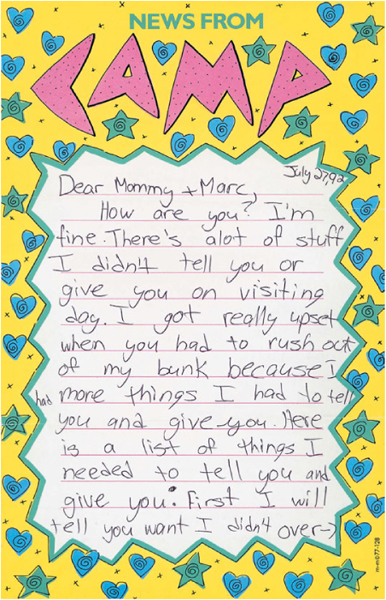 NEWS FROM
CAMP
July 27, 92
Dear Mommy + Marc,
How are you? I'm
fine. There's alot of stuff
I didn't tell you or
give you on visiting
day. I got really upset
when you had to rush out
of my bunk because I
had more things I had to tell
you and give you. Here
is a list of things I
needed to tell you and
give you: First I will
tell you want I didn't over→
m-m677-128